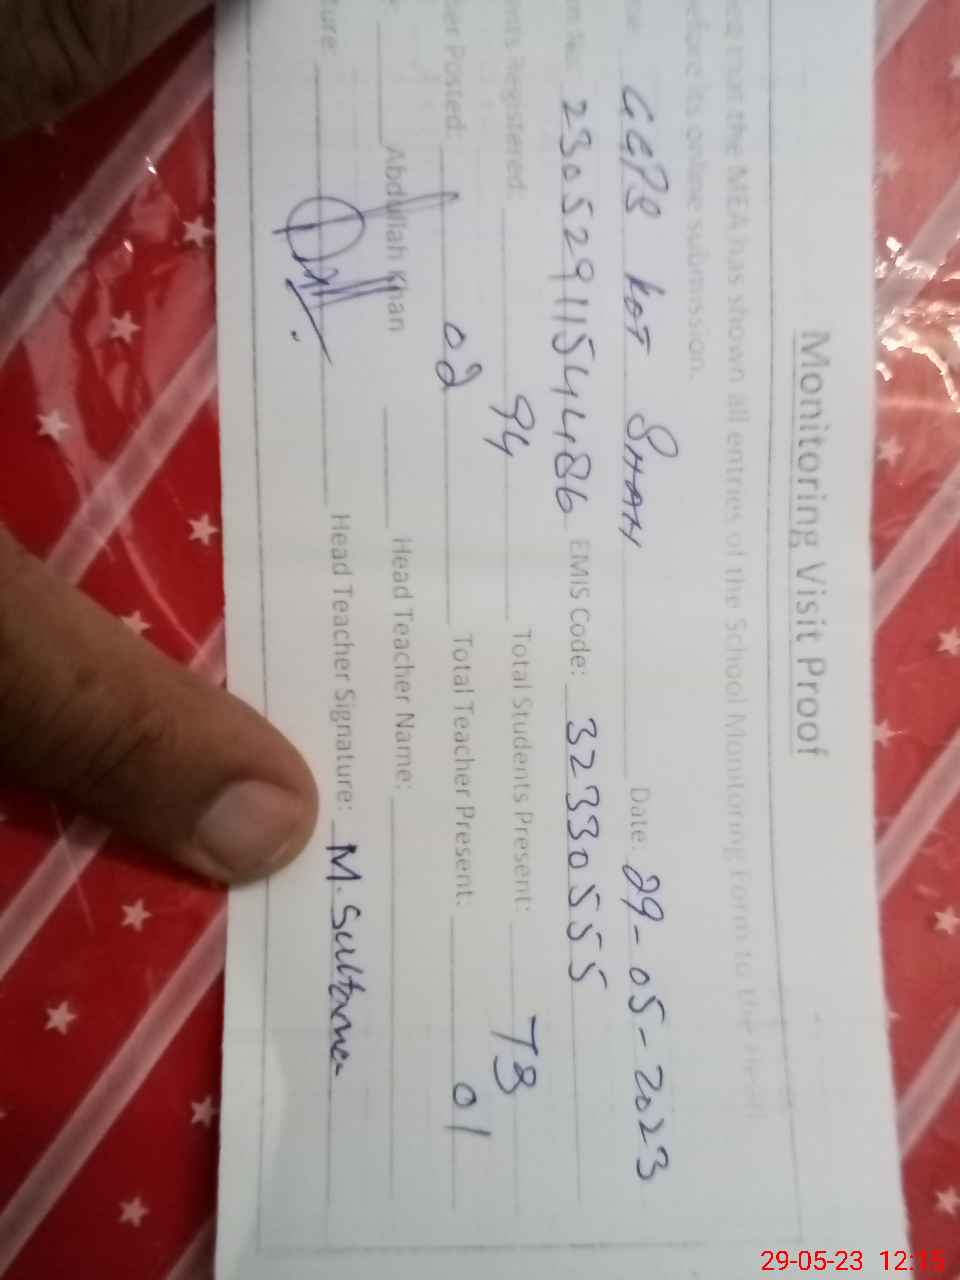 Monitoring Visit Proof
that the MEA has shown all entries of the School Monitoring Form to the Head
before its online submission.
GGPS KOT SHAH Date: 29-05-2023
23052911544486 EMIS Code: 32330555
Registered: 94 Total Students Present: 78
Posted: 02 Total Teacher Present: 01
Abdullah Khan Head Teacher Name:
Head Teacher Signature: M. Sultana
29-05-23 12:15